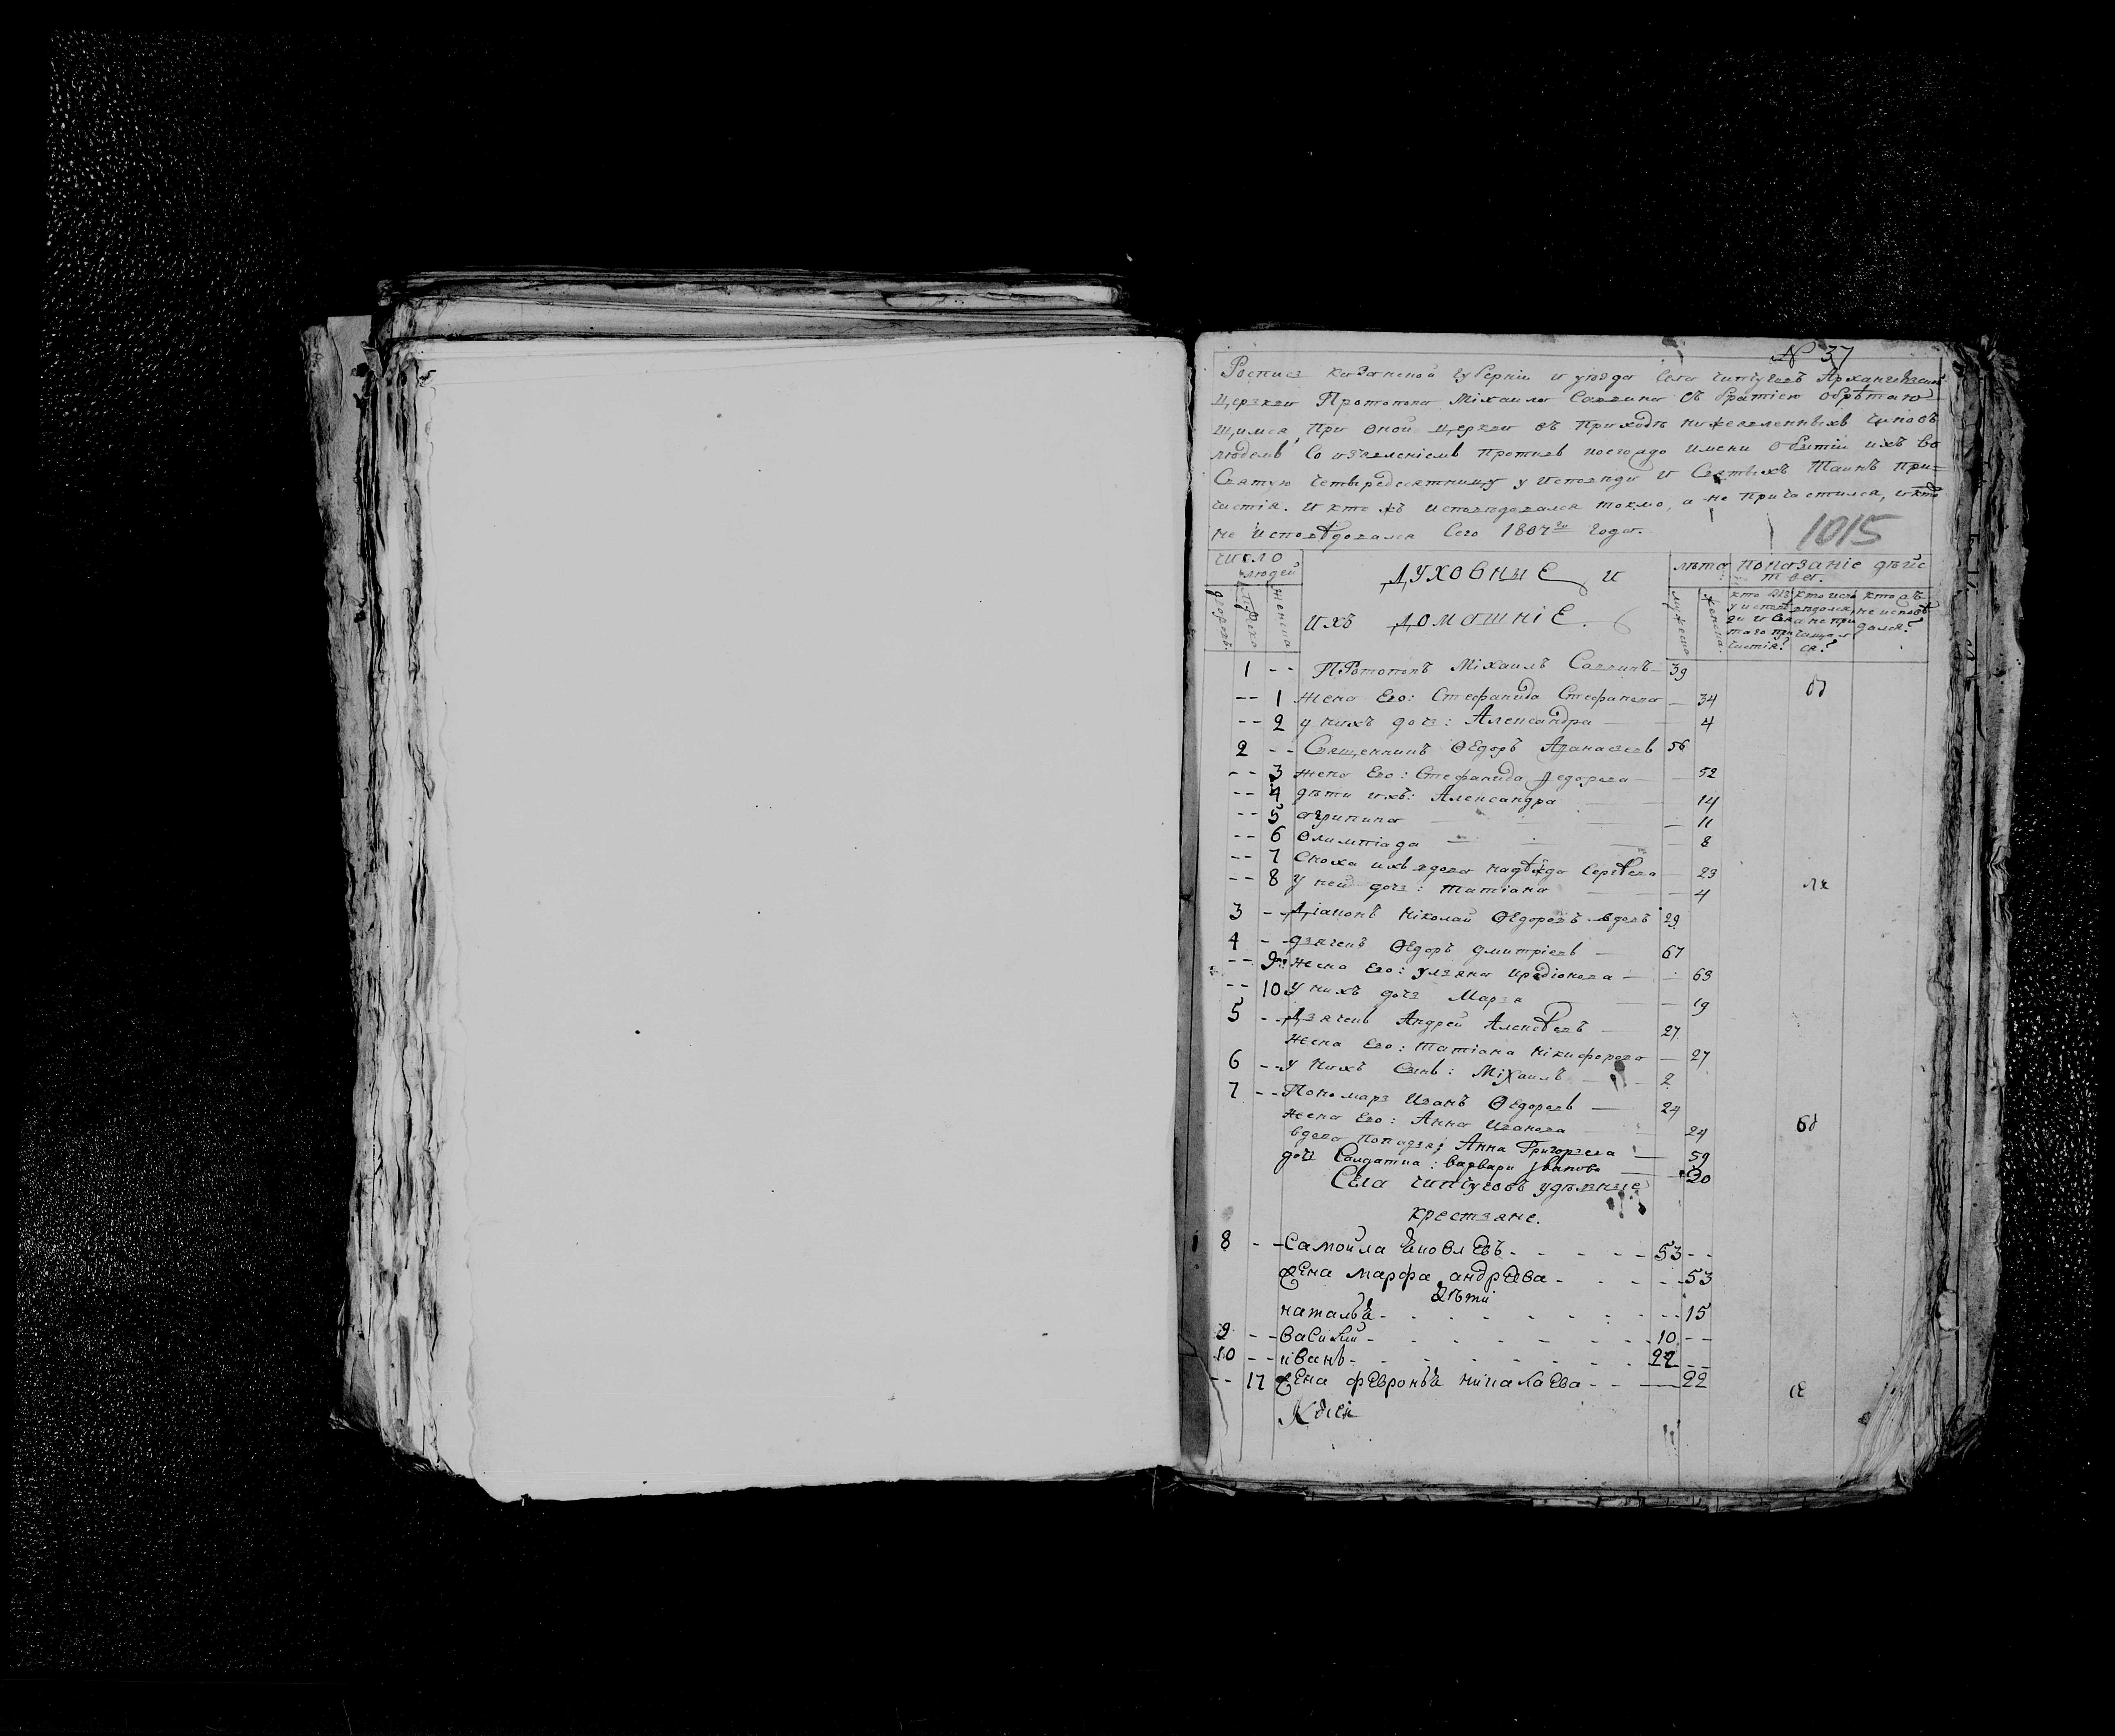 № 37
Роспись казанской губернiи и уѣзда села чипчуговъ Архангелской
церкви Протопопа Мiхаила Саввина съ братiею обрѣтаю
щимся при оной церкви въ приходѣ нижеявленныхъ чиновъ
людемъ со изъявленiемъ противъ коегождо имени о бытiи ихъ во
Святую четыредесятницу у исповѣди и Святыхъ Таинъ при=
частiя. и кто жъ исповѣдовался токмо, а не причастился, и кто
не исповѣдовался сего 1807го года.
1015
число людей
дворовъ.
мужеска
женска
духовные и
ихъ домашнiе.
лѣта
мужеска
женска
показанiе дѣйс
тва.
1 -- Протопопъ Мiхаилъ Саввинъ 39
-- 1 жена Его: Стефанида Стефанова 34
-- 2 у нихъ дочь: Александра 4
2 -- Священникъ Ѳедоръ Афанасьевъ 56
-- 3 жена Его: Стефанида Федорова 52
-- 4 дѣти ихъ: Александра 14
-- 5 агрипина 11
-- 6 Олимпiада 8
-- 7 Сноха ихъ вдова надѣжда Сергѣева 23
-- 8 у ней дочь: татiана 4
3 -- Дiаконъ Нiколай Ѳедоровъ вдовъ 29
4 -- дьячекъ Ѳедоръ дмитрiевъ 67
-- 9 жена Его: ульяна иродiонова 63
-- 10 у нихъ дочь Марья 19
5 -- Дьячекъ Андрей Алексѣевъ 27
жена Его: татiана Нiкифорова 27
6 -- у нихъ сынъ: Мiхаилъ 2
7 -- Пономарь Иванъ Ѳедоровъ 24
жена Его: Анна Иванова 24
вдова попадья: Анна Григорьева 59
дочь Салдатка: варвара Иванова 30
Села чипчуговъ удѣлные
крестьяне.
8 -- Самойла Яковлевъ 53 --
жена марфа андрѣева 53
дѣти
наталья 15
9 -- васили́й 10 --
10 -- иванъ 22 --
-- 17 жена февронья никалаева 22